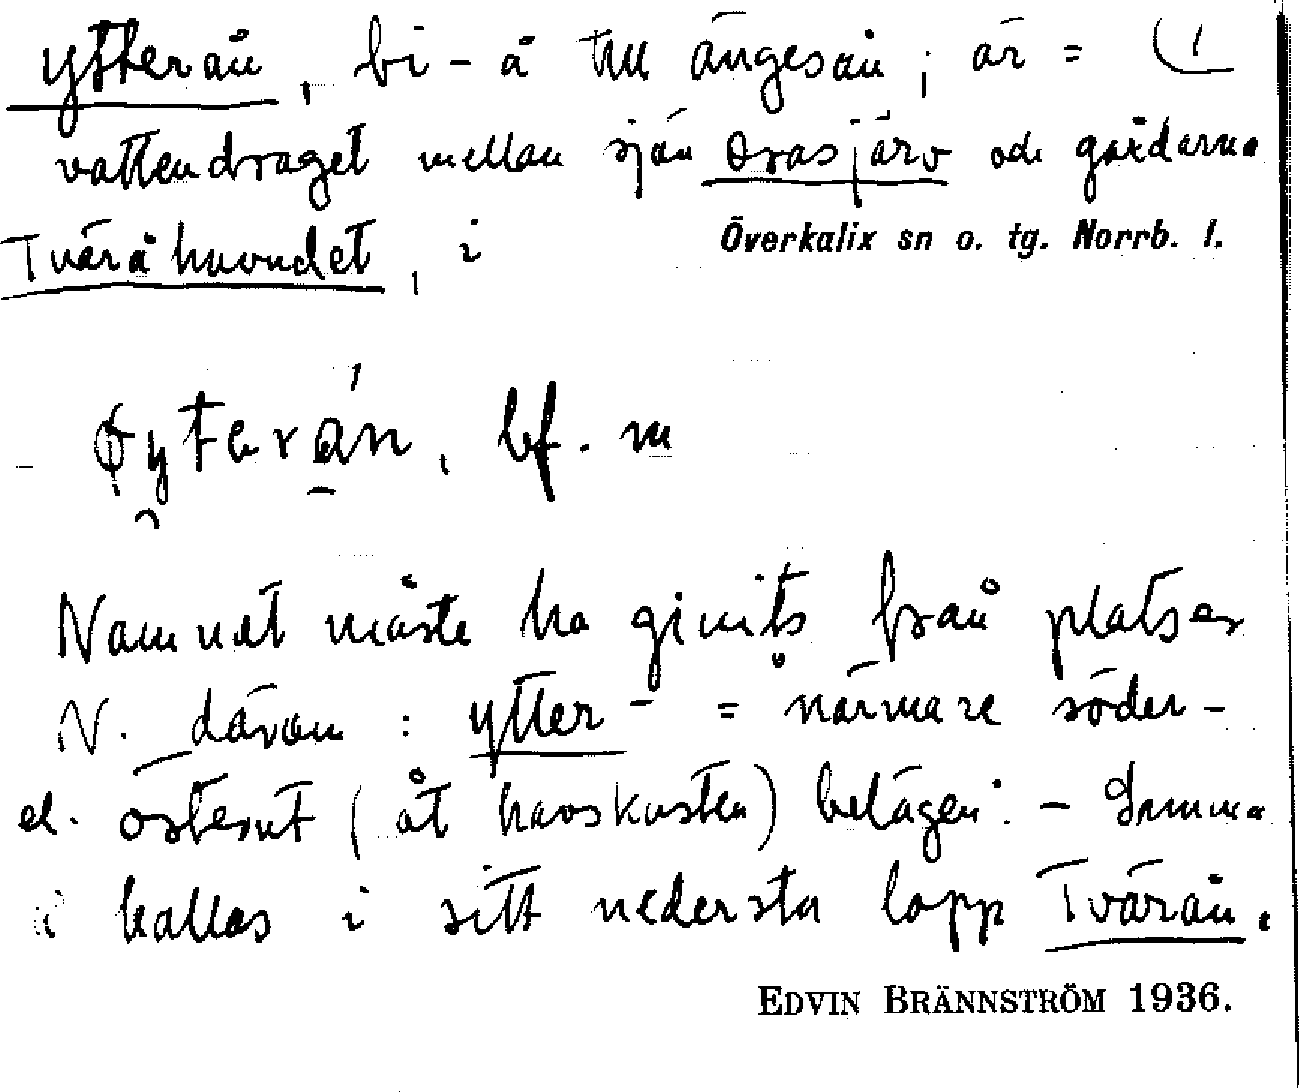 Ytterån, bi-å till ängesån; är = (1
vattendraget mellan sjön Orasjärv och gårdarna
Tväråhuvudet, i Överkalix sn o. tg. Norrb. l.
bf. m
Namnet måste ha givits från platser
N. därom: ytter- = närmare söder-
el. österut (åt havskusten) belägen. - Samma
å kallas i sitt nedersta lopp Tvärån.
EDVIN BRÄNNSTRÖM 1936.